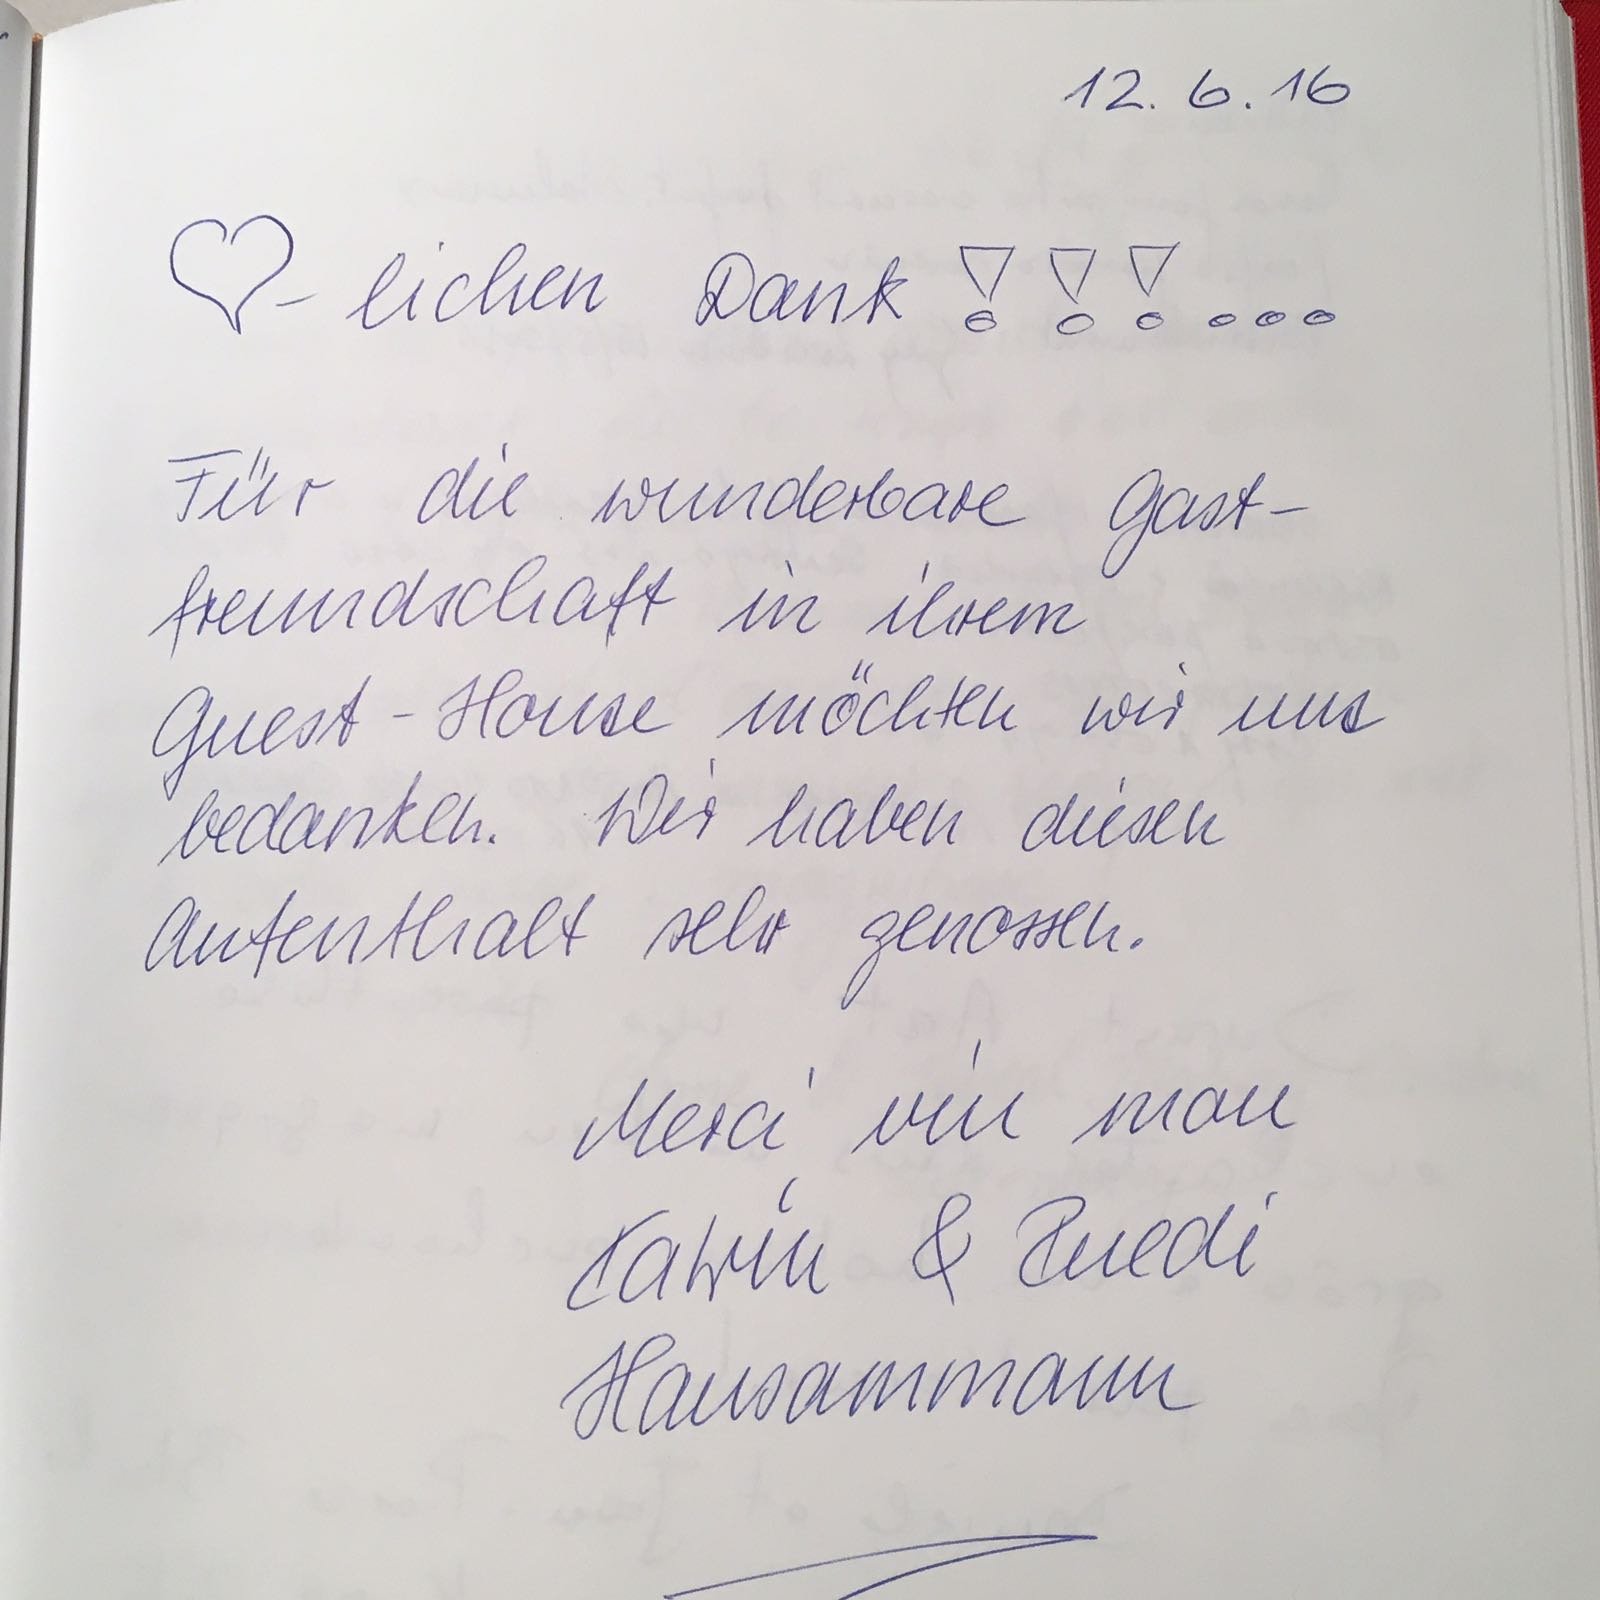 12. 6. 16
♡-lichen Dank !!!...
Für die wunderbare Gast-
freundschaft in ihrem
Guest-House möchten wir uns
bedanken. Wir haben diesen
Aufenthalt sehr genossen.
Merci vill mau
Katrin & Ruedi
Hausammann